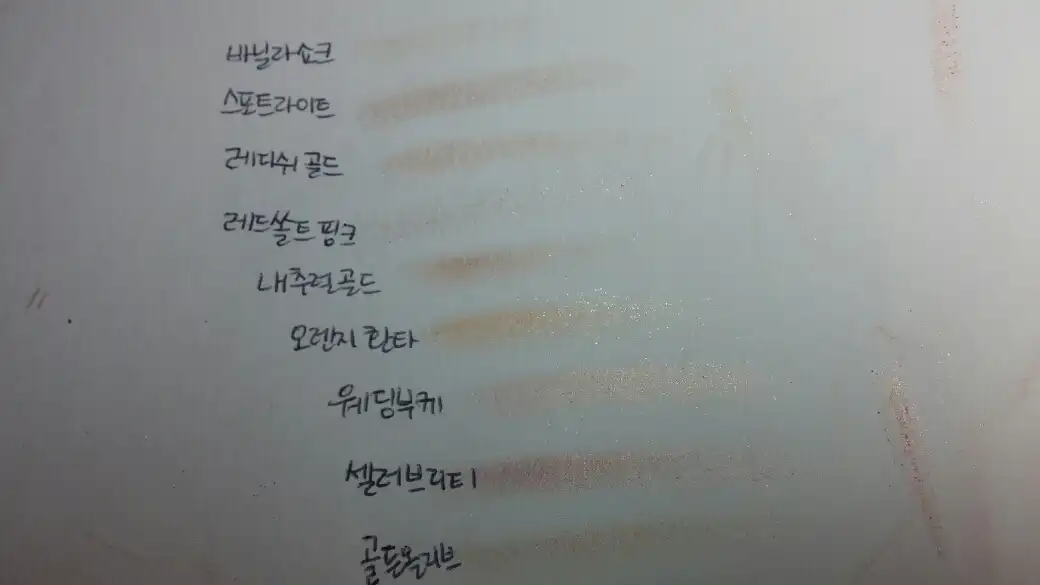 바닐라쇼크
스포트라이트
레디쉬 골드
레드쏠트 핑크
내추럴골드
오렌지 환타
웨딩부케
셀러브리티
골든올리브